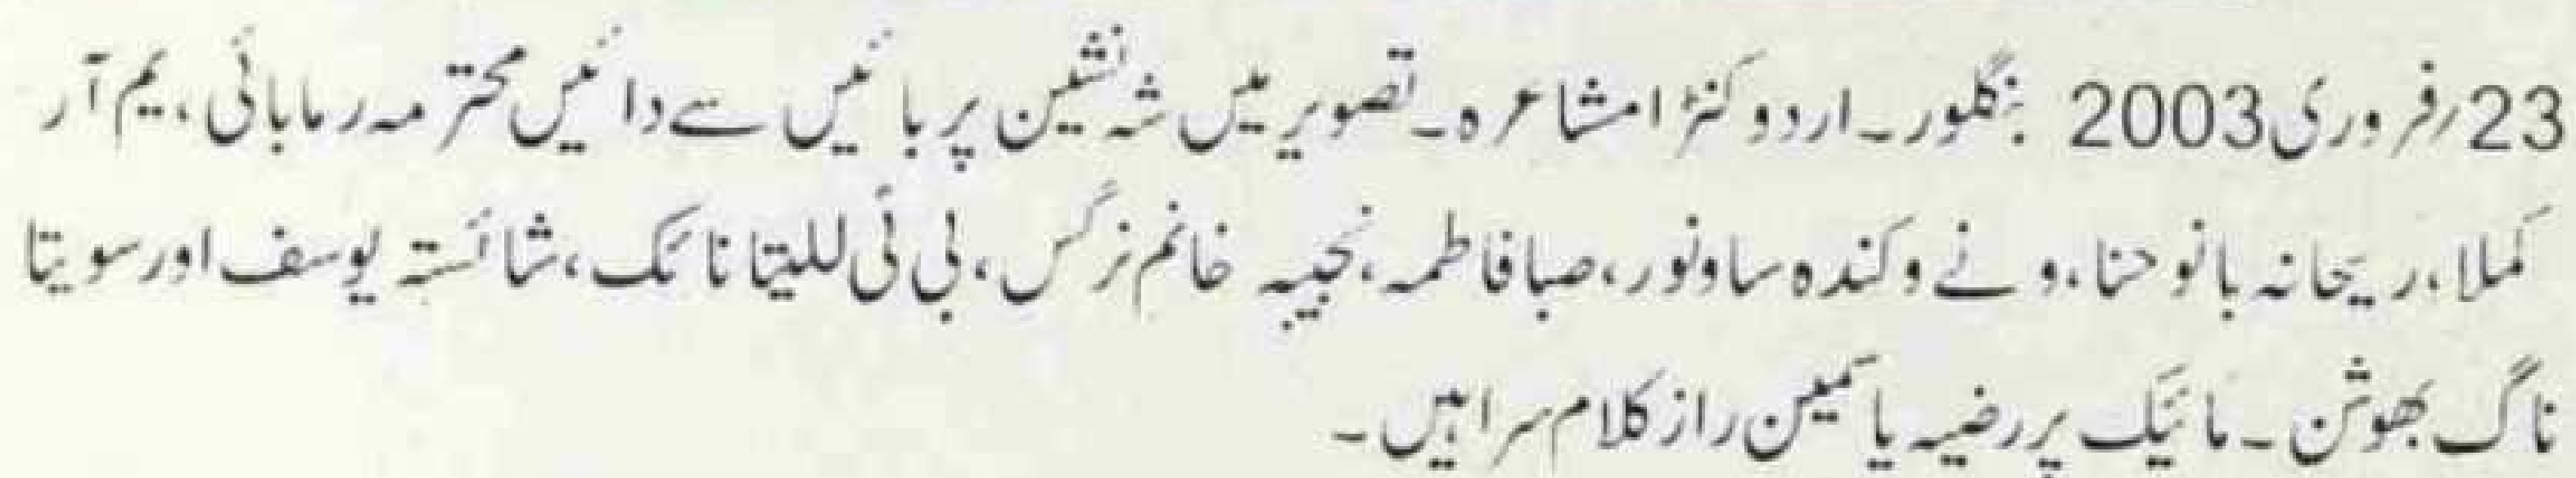 23؍فروری2003 بنگلور۔اردو کنڑا مشاعرہ۔تصویر میں شہ نشین پر بائیں سے دائیں محترمہ رما بائی، یم آر
کملا، ریحانہ بانو حنا، ونے وکندہ ساونور، صبا فاطمہ، نجیبہ خانم نرگس، بی ٹی للیتا نائک، شائستہ یوسف اور سویتا
ناگ بھوشن۔ مائیک پر رضیہ یاسمین راز کلام سرا ہیں۔